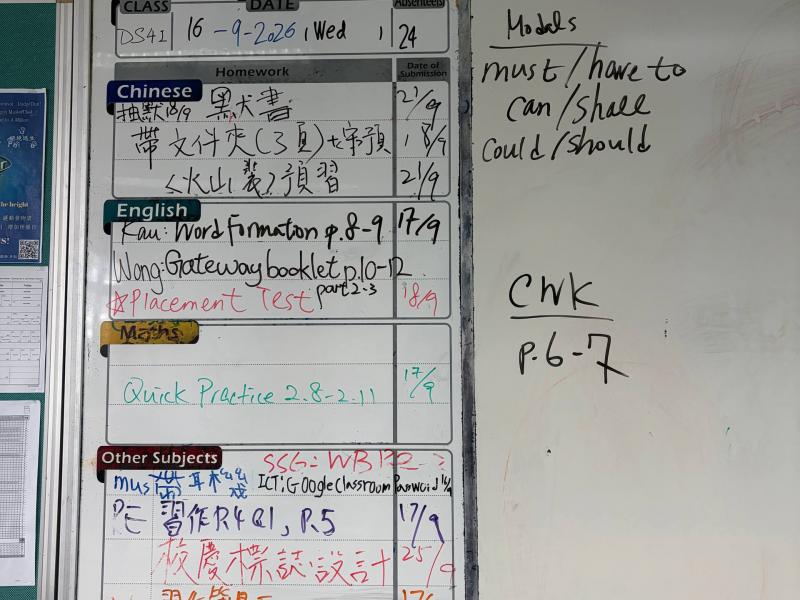 CLASS DATE Absentee(s)
DS4I 16-9-2026 (Wed) 24
Homework Date of Submission
Chinese
抽默18/9 黑犬書 21/9
帶文件夾(3頁)+家預 18/9
〈火山裏〉預習 21/9
English
Kau: Word Formation p.8-9 17/9
Wong: Gateway booklet p.10-12
part 2-3
☆Placement Test 18/9
Maths
Quick Practice 2.8-2.11 17/9
Other Subjects
SSG: WB
mus ICT: Google Classroom
PE 習作 P.5 17/9
校慶標誌設計 25/9
Modals
must/have to
can/shall
could/should
CWK
p.6-7